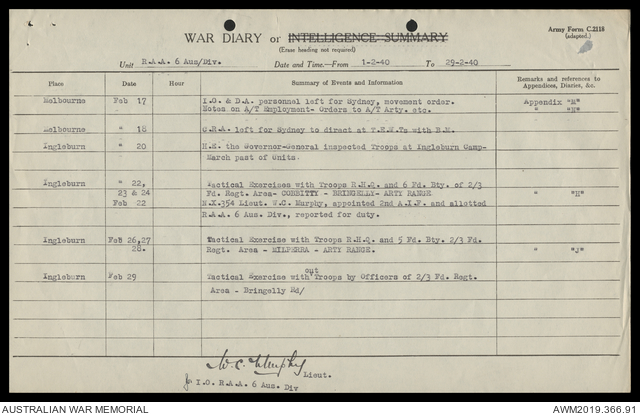 WAR DIARY or INTELLIGENCE SUMMARY
Army Form C.2118
(adapted.)
(Erase heading not required)
Unit R.A.A. 6 Aus/Div. Date and Time:—From 1-2-40 To 29-2-40
Place Date Hour Summary of Events and Information Remarks and references to Appendices, Diaries, &c.
Melbourne Feb 17 I.O. & D.A. personnel left for Sydney, movement order. Appendix "M"
Notes on A/T Employment- Orders to A/T Arty. etc. " "N"
Melbourne " 18 C.R.A. left for Sydney to direct at T.E.W.Ts with B.M.
Ingleburn " 20 H.E. the Governor-General inspected Troops at Ingleburn Camp-
March past of Units.
Ingleburn " 22, Tactical Exercises with Troops R.H.Q. and 6 Fd. Bty. of 2/3
23 & 24 Fd. Regt. Area- COBBITTY - BRINGELLY- ARTY RANGE " "H"
Feb 22 N.X.354 Lieut. W.C. Murphy, appointed 2nd A.I.F. and allotted
R.A.A. 6 Aus. Div., reported for duty.
Ingleburn Feb 26,27 Tactical Exercise with Troops R.H.Q. and 5 Fd. Bty. 2/3 Fd.
28. Regt. Area - MILPERRA - ARTY RANGE. " "J"
Ingleburn Feb 29 Tactical Exercise without Troops by Officers of 2/3 Fd. Regt.
Area - Bringelly Rd/
W.C. Murphy Lieut.
for I.O. R.A.A. 6 Aus. Div
AUSTRALIAN WAR MEMORIAL AWM2019.366.91